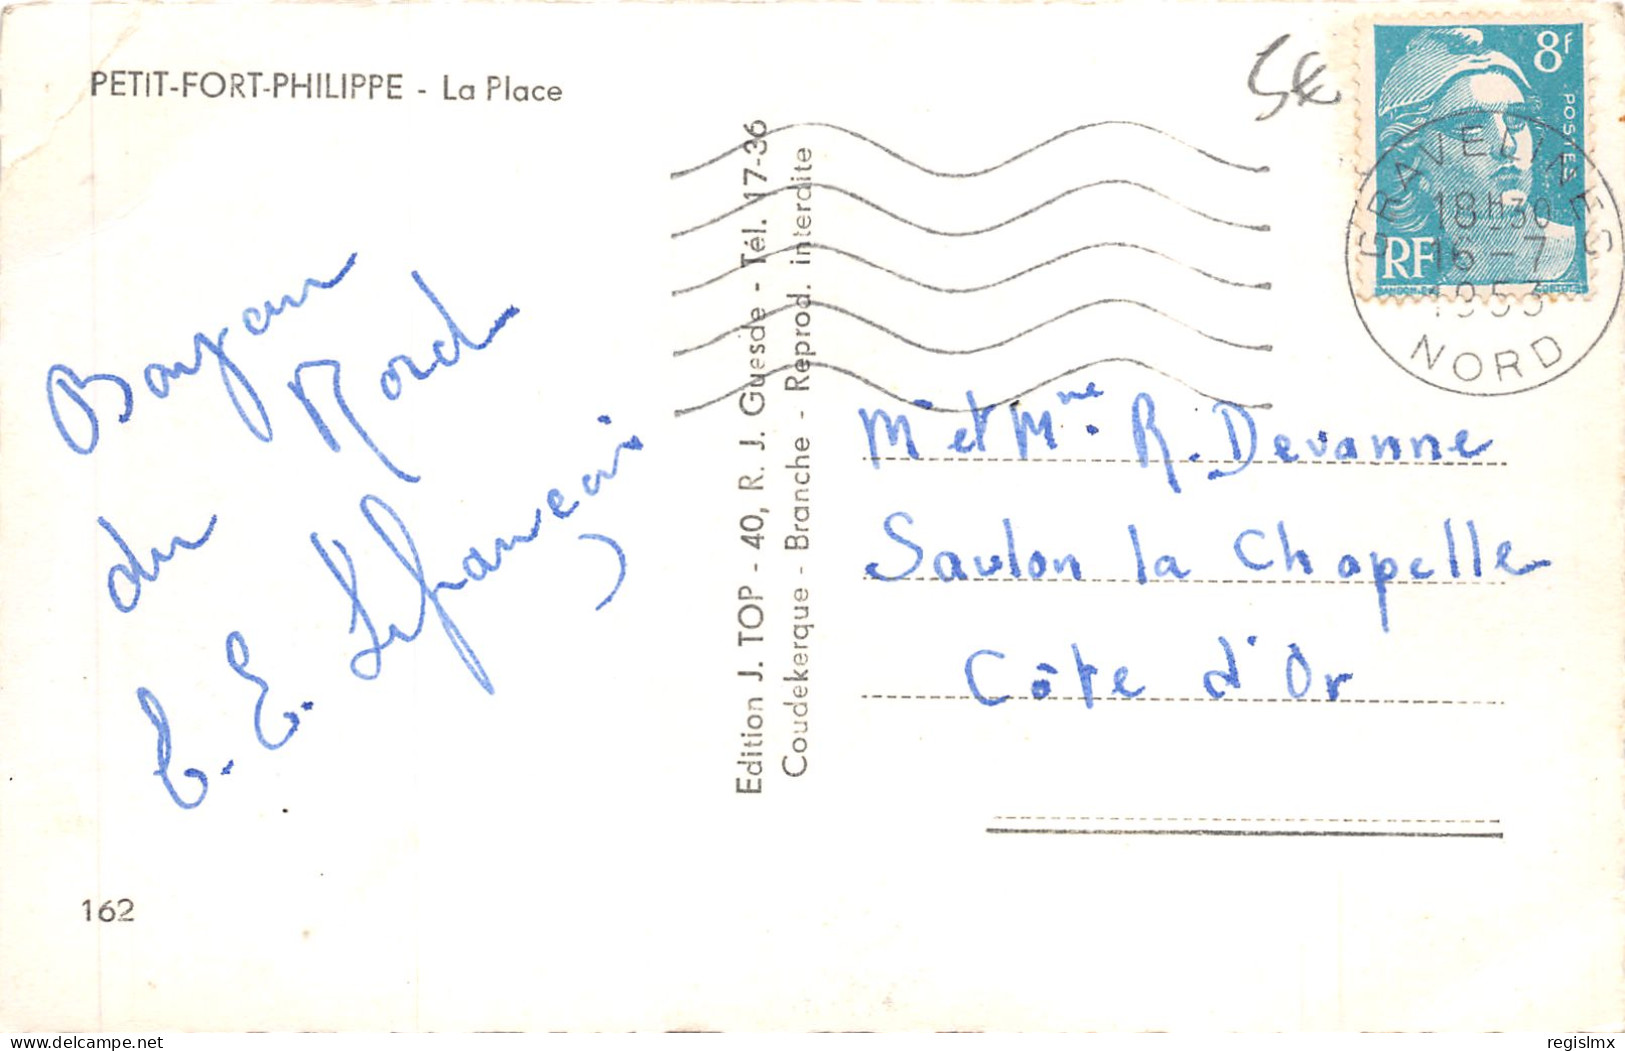 PETIT-FORT-PHILIPPE - La Place
5€
8f
POSTES
RF
GRAVELINES
18h30
16-7
1953
NORD
Edition J. TOP - 40, R. J. Guesde - Tél. 17-36
Coudekerque - Branche - Reprod. interdite
Bonjour
du Nord
E. E.
Mr et Mme R. Devanne
Saulon la Chapelle
Côte d'Or
162
delcampe.net
regislmx